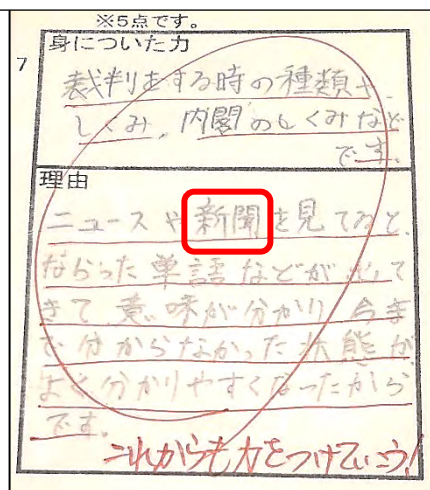 ※5点です。
7
身についた力
裁判をする時の種類や
しくみ、内閣のしくみなど
です。
理由
ニュースや新聞を見てみると
ならった単語などが出て
きて、意味が分かり、今ま
で分からなかった状態が
よく分かりやすくなったから
です。
これからも力をつけていこう!